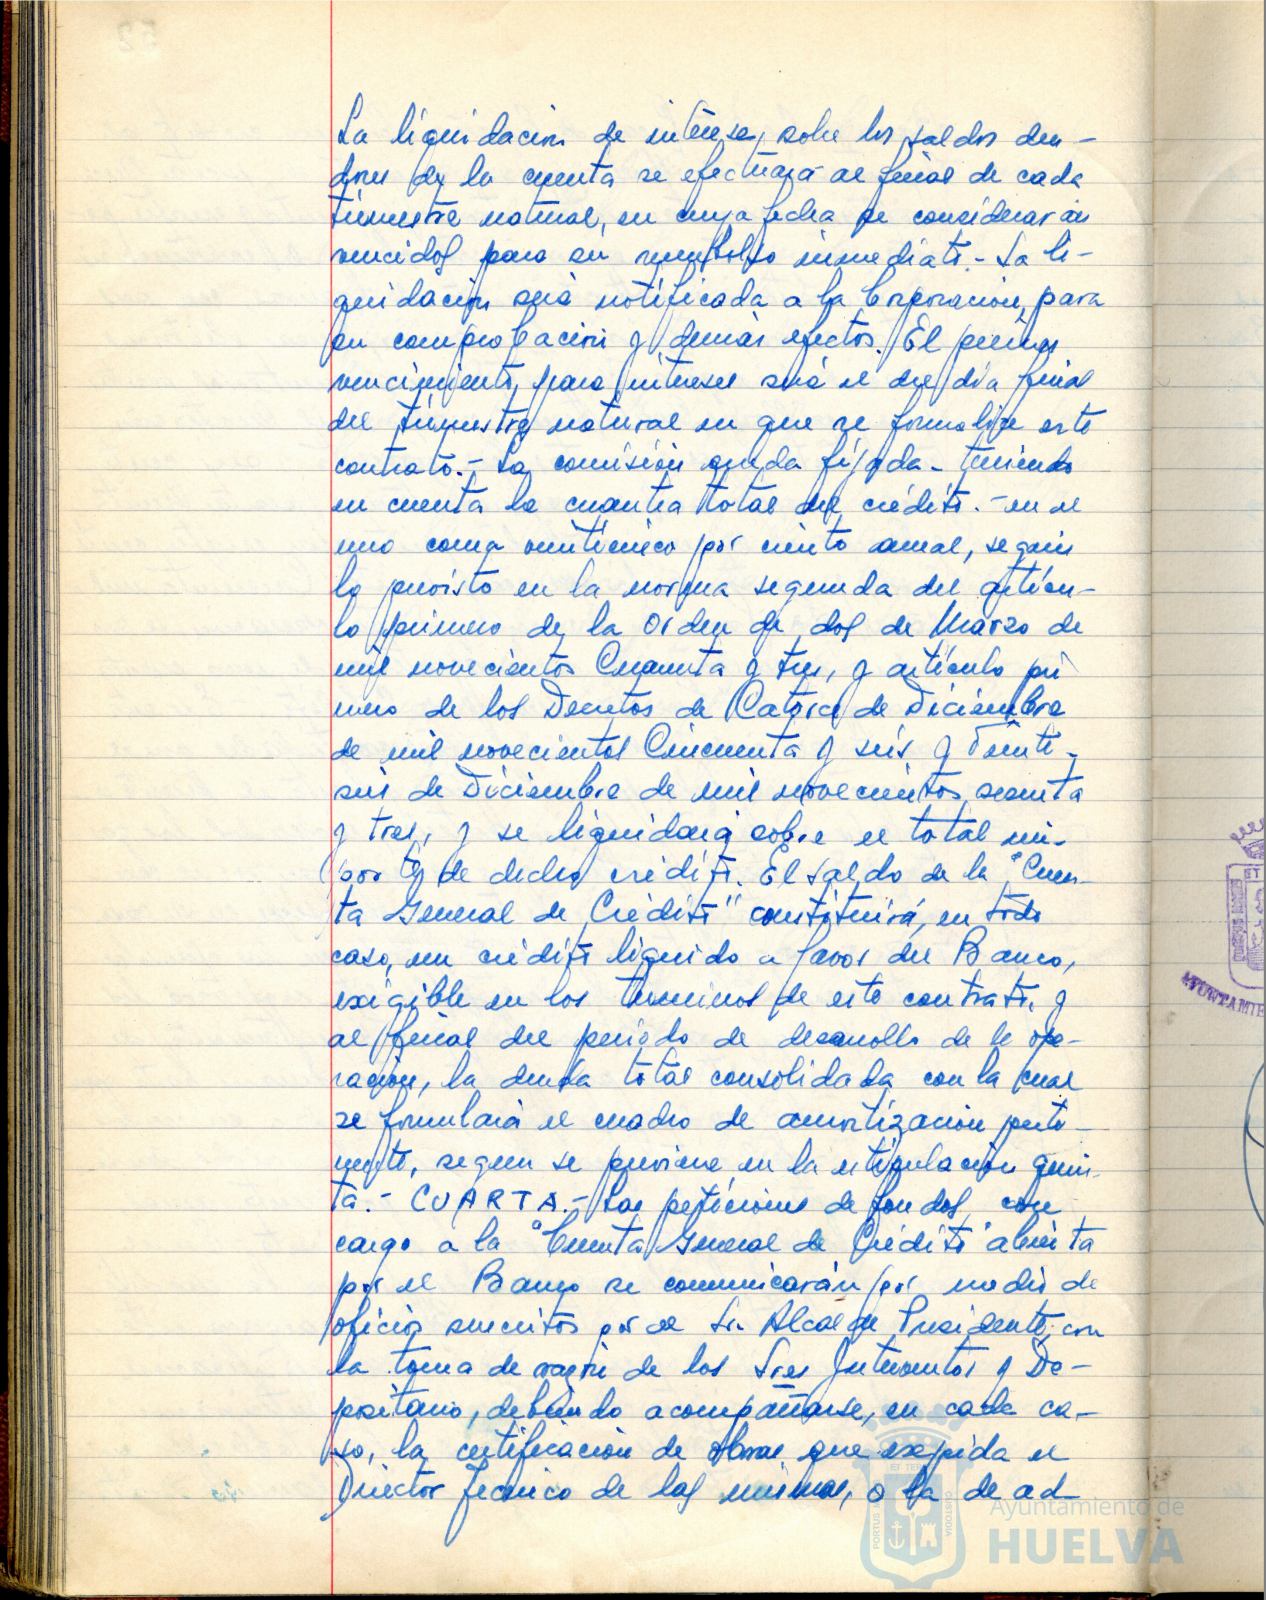 La liquidación de intereses sobre los saldos deu-
dores de la cuenta se efectuará al final de cada
trimestre natural, en cuya fecha se considerarán
vencidos para su reembolso inmediato.- La li-
quidación será notificada a la Corporación, para
su comprobación y demás efectos. El primer
vencimiento, para intereses será el del día final
del trimestre natural en que se formalize este
contrato.- La comisión queda fijada - teniendo
en cuenta la cuantía total del crédito.- en el
uno coma veinticinco por ciento anual, según
lo previsto en la norma segunda del artícu-
lo primero de la Orden de dos de Marzo de
mil novecientos Cuarenta y tres, y artículo pri
mero de los Decretos de Catorce de Diciembre
de mil novecientos Cincuenta y seis y Veinti-
seis de Diciembre de mil novecientos sesenta
y tres, y se liquidará sobre el total im-
porte de dicho crédito. El saldo de la "Cuen-
ta General de Crédito" constituirá, en todo
caso, un crédito líquido a favor del Banco,
exigible en los términos de este contrato, y
al final del periodo de desarrollo de la ope-
ración, la deuda total consolidada con la cual
se formulará el cuadro de amortización perti-
nente, segun se previene en la estipulación quin-
ta.- CUARTA.- Las peticiones de fondos, con
cargo a la "Cuenta General de Crédito" abierta
por el Banco se comunicarán por medio de
oficios suscritos por el Sr. Alcalde Presidente, con
la toma de razón de los Sres Interventor y De-
positario, debiendo acompañarse, en cada ca-
so, la certificación de obras que expida el
Director Tecnico de las mismas, o la de ad-
PORTUS MARIS
ET TERRE
CUSTODIA
Ayuntamiento de
HUELVA
AYUNTAMIE